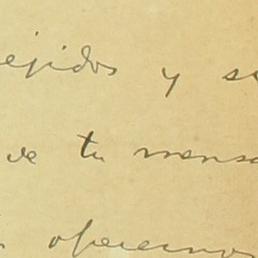 ejidos y s
ve tu mensa
operemos